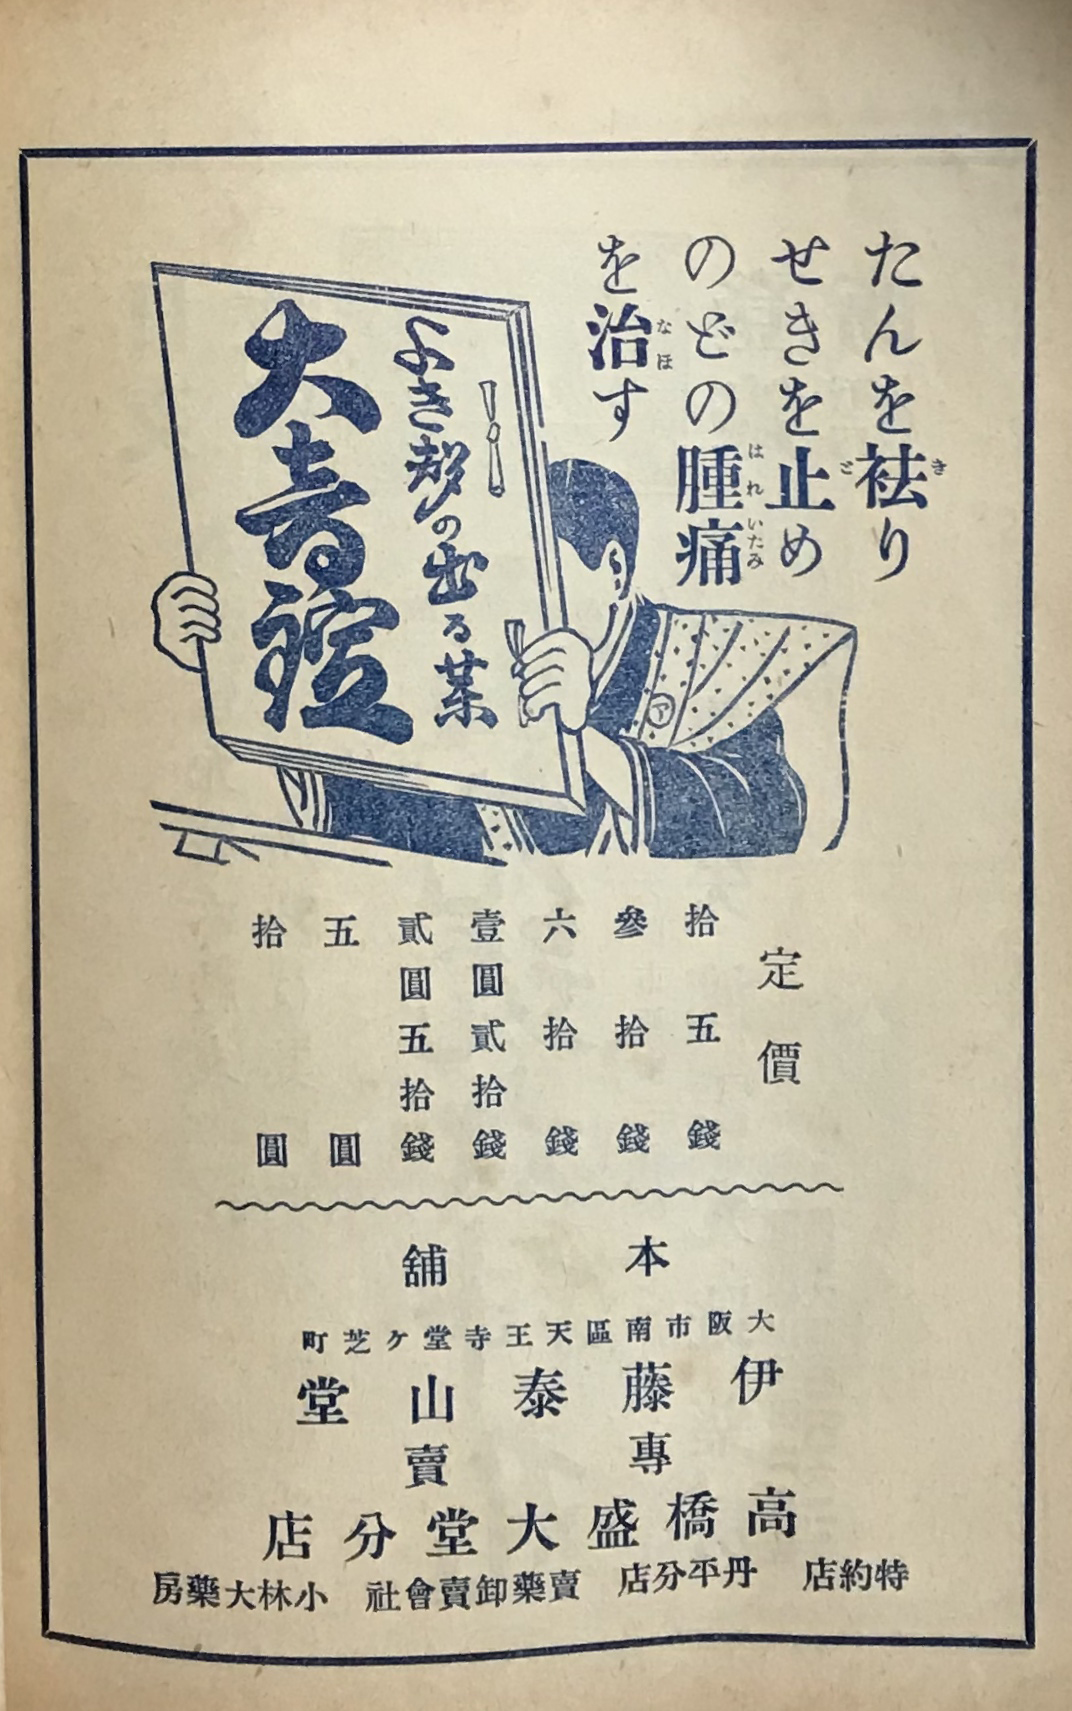 たんを祛り
き
せきを止め
のどの腫痛
はれいたみ
を治す
なほ
よき聲の出る藥
大音錠
ア
定價
拾五錢
參拾錢
六拾錢
壹圓貳拾錢
貳圓五拾錢
五圓
拾圓
本舖
大阪市南區天王寺堂ケ芝町
伊藤泰山堂
專賣
高橋盛大堂分店
特約店 丹平分店 賣藥卸賣會社 小林大藥房